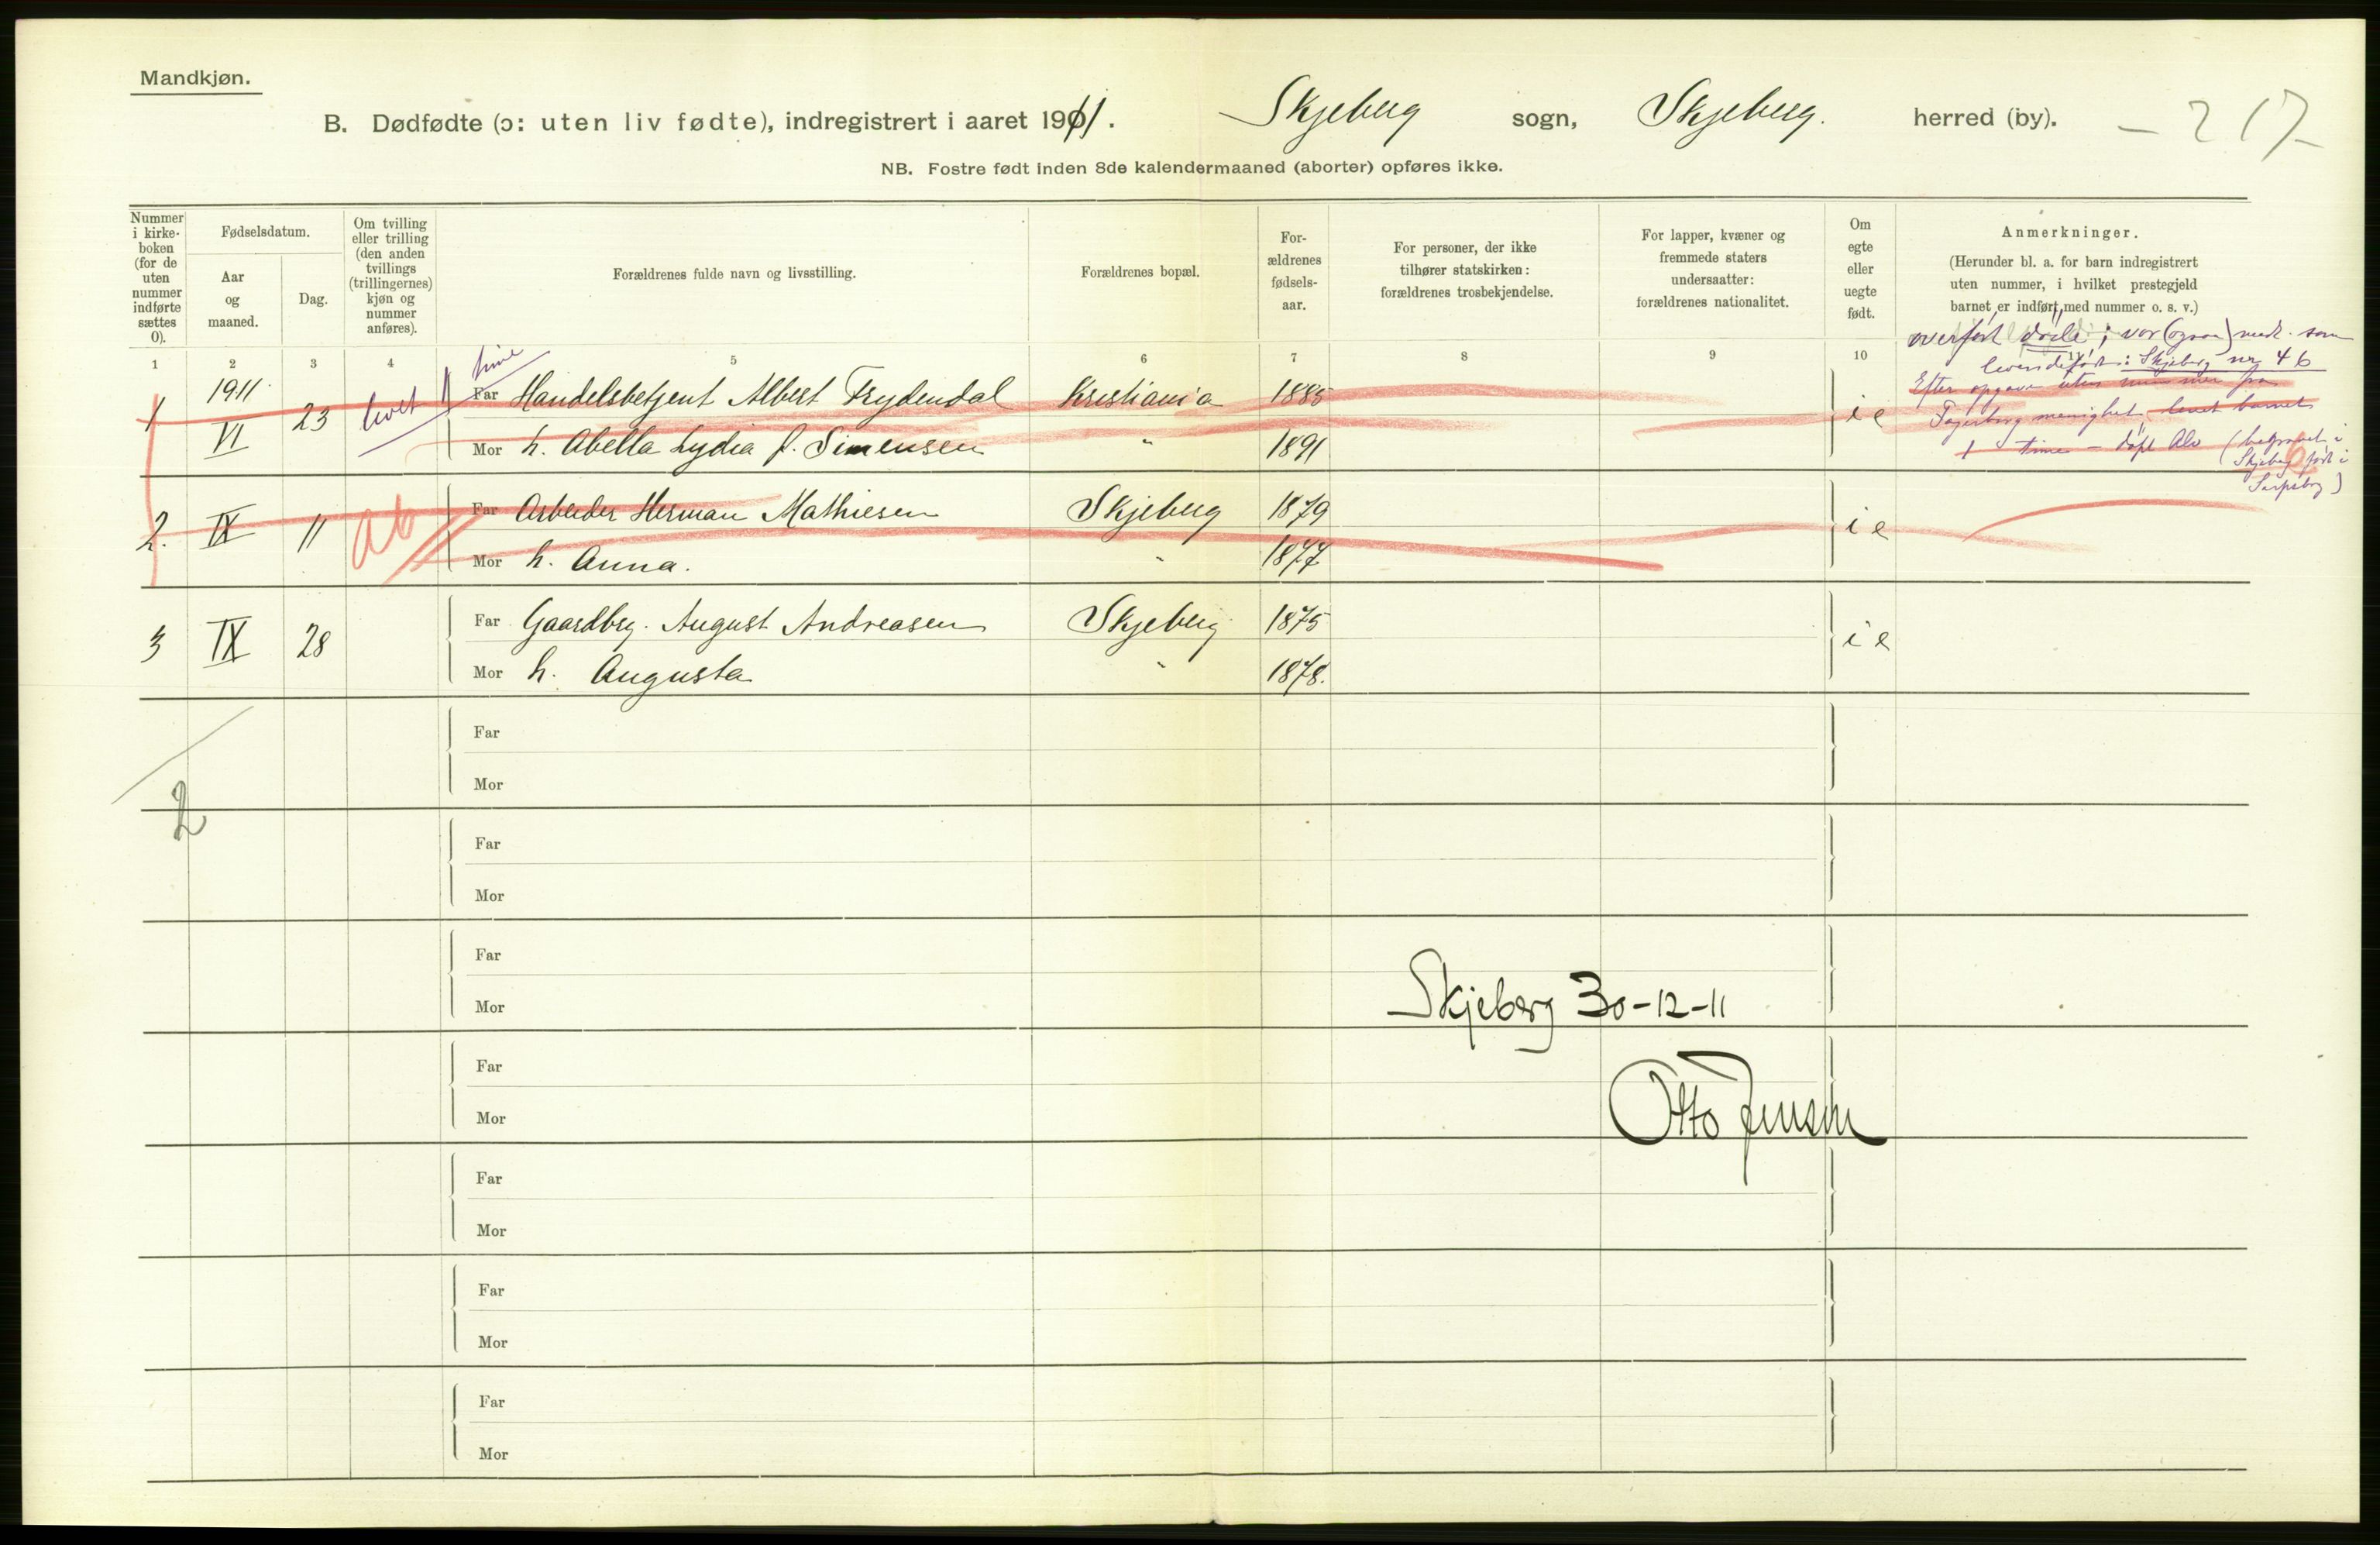 Mandkjøn.
B. Dødfødte (ɔ: uten liv fødte), indregistrert i aaret 1911. Skjeberg sogn, Skjeberg. herred (by). – 217–
NB. Fostre født inden 8de kalendermaaned (aborter) opføres ikke.
Nummer i kirke-boken (for de uten nummer indførte sættes 0).
Fødselsdatum.
Aar og maaned.
Dag.
Om tvilling eller trilling (den anden tvillings (trillingernes) kjøn og nummer anføres).
Forældrenes fulde navn og livsstilling.
Forældrenes bopæl.
For-ældrenes fødsels-aar.
For personer, der ikke tilhører statskirken: forældrenes trosbekjendelse.
For lapper, kvæner og fremmede staters undersaatter: forældrenes nationalitet.
Om egte eller uegte født.
Anmerkninger.
(Herunder bl. a. for barn indregistrert
uten nummer, i hvilket prestegjeld
barnet er indført med nummer o. s. v.)
1 2 3 4 5 6 7 8 9 10
overført døde; var (ogsaa) medt. som
levendefødt: Skjeberg nr 46
Efter opgave uten nummer fra
Fagerborg menighet levet barnet
1 time – døpt Alv (begravet i
Skjeberg født i
Sarpsborg)
1 1911 VI 23 levet 1 time Far Handelsbetjent Albert Frydendal Kristiania 1885 ie
Mor h. Abella Lydia f. Simensen " 1891
2. IX 11 ab Far Arbeider Herman Mathiesen Skjeberg 1879 ie
Mor h. Anna. " 1877
3 IX 28 Far Gaardbrg. August Andreasen Skjeberg 1875 ie
Mor h. Augusta " 1878.
Far
Mor
2
Far
Mor
Far
Mor
Skjeberg 30-12-11
Far
Mor
Otto Jensen
Far
Mor
Far
Mor
Far
Mor